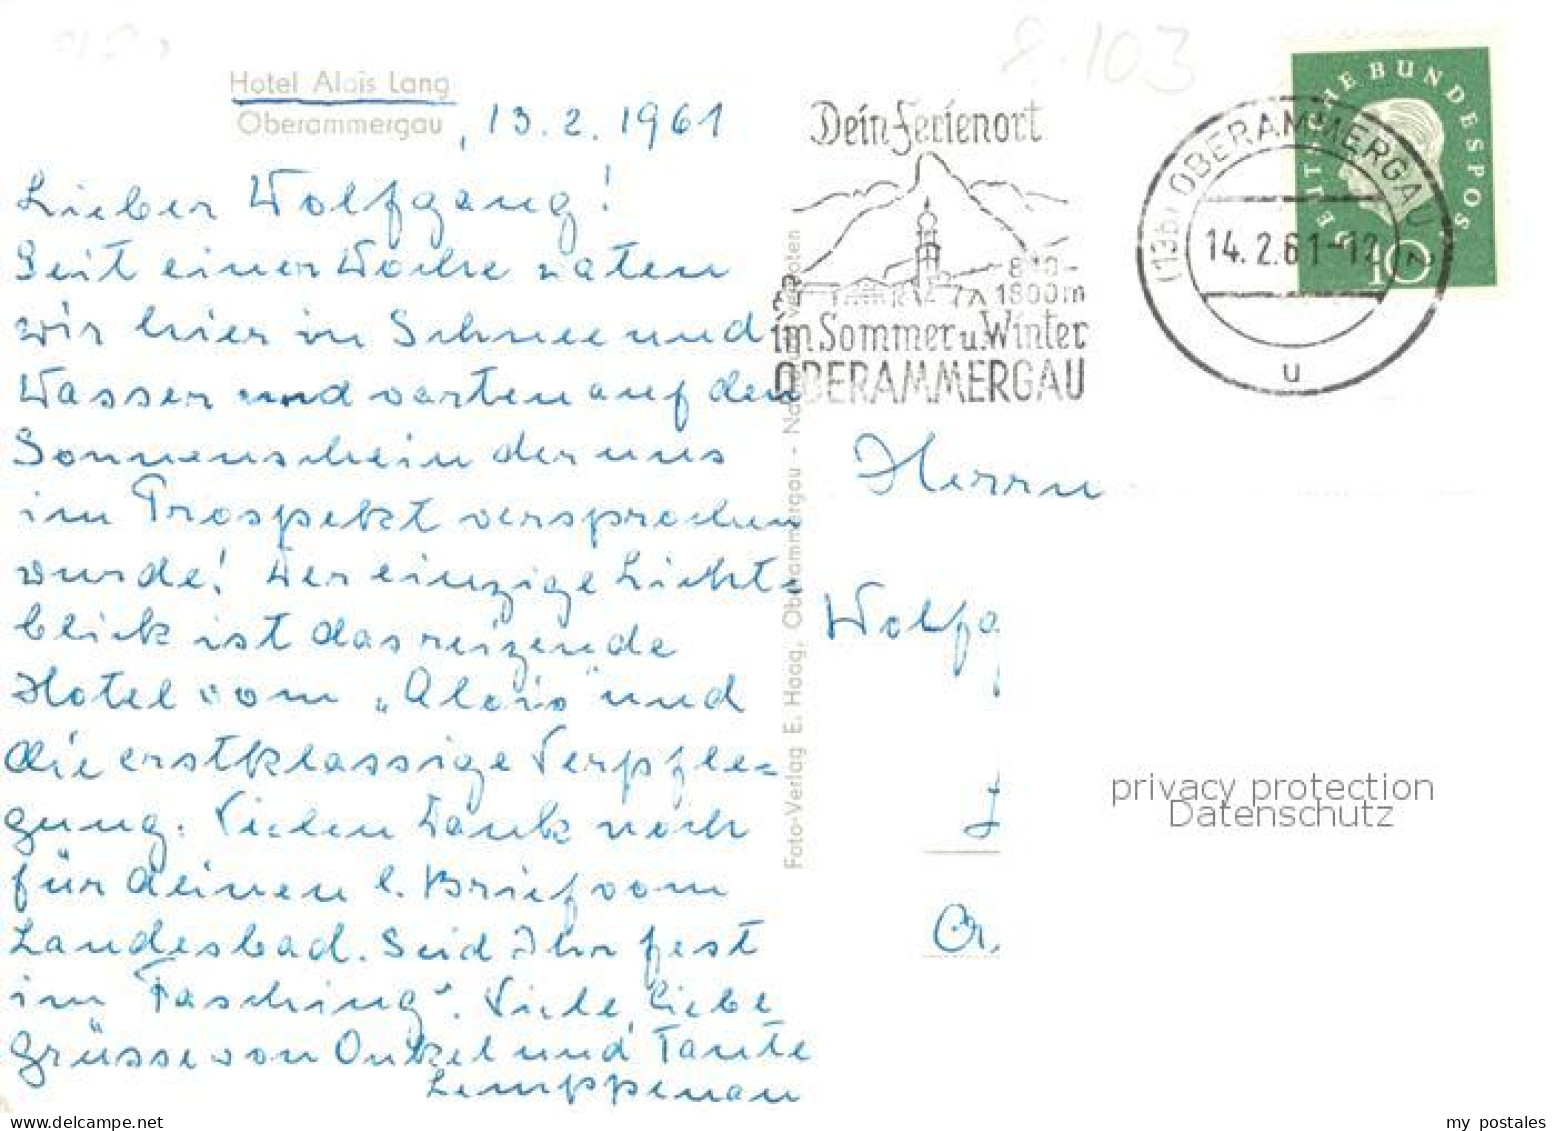 8.103
Hotel Alois Lang
Oberammergau
, 13.2.1961
Lieber Wolfgang!
Seit einer Woche waten
wir hier in Schnee und
Wasser und warten auf den
Sonnenschein der uns
im Prospekt versprochen
wurde! Der einzige Licht=
blick ist das reizende
Hotel vom „Alois" und
die erstklassige Verpfle=
gung. Vielen Dank noch
für deinen l. Brief vom
Landesbad. Seid Ihr fest
im "Fasching". Viele, liebe
Grüsse von Onkel und Tante
Lemppenau
Foto-Verlag E. Haag, Oberammergau - Nachdruck verboten
Dein Ferienort
840-
1800m
im Sommer u. Winter
OBERAMMERGAU
(13b) OBERAMMERGAU 2
14.2.61-12
u
DEUTSCHE BUNDESPOST
10
Herrn
Wolfg
privacy protection
Datenschutz
my postales